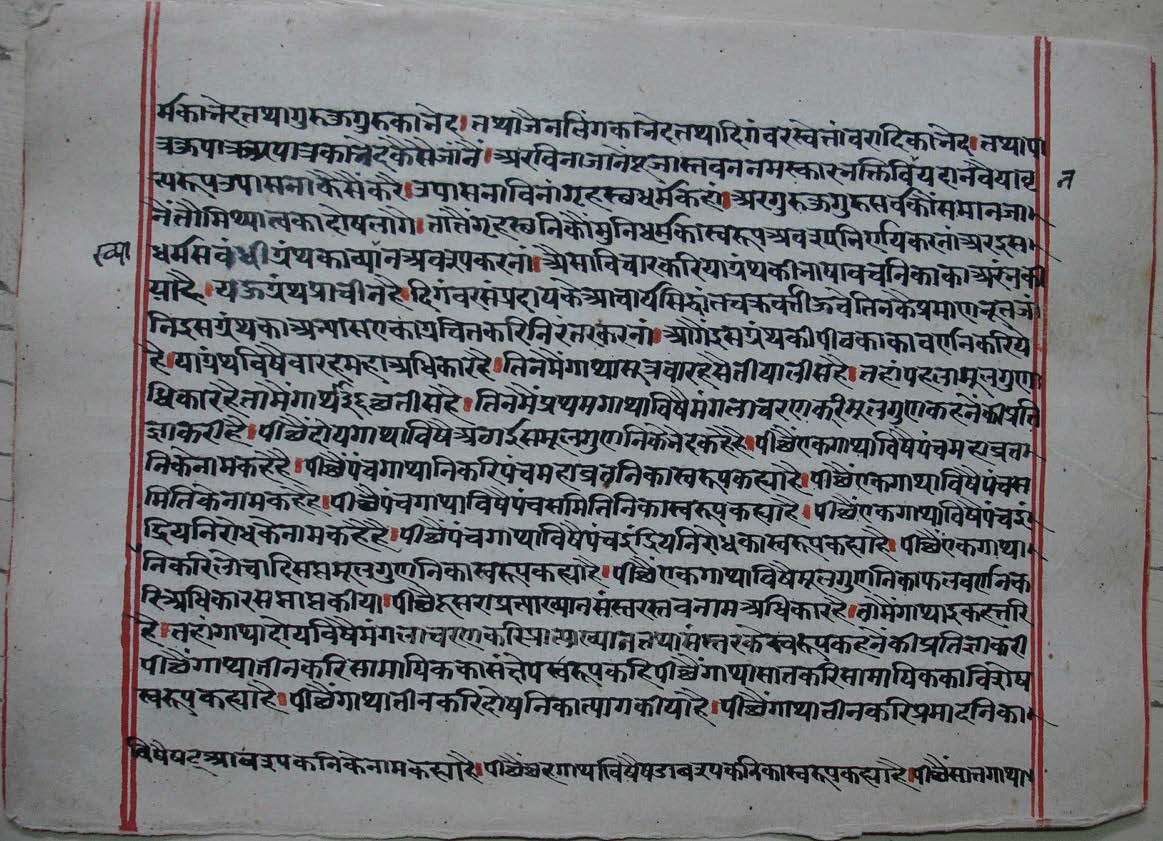 र्मकानेदतथागुरुऊगुरुकानेद। तथाजैनलिंगकानेदतथादिगंबरस्वेतांबरादिकानेद। तथापा
त्रऊपात्रअपात्रकानेदकैसैजांनैं। अरविनाजानेंपूजास्तवननमस्कारनक्तिविनयदानवैयावृ
त्यरूपउपासनाकैसैंकरै। उपासनाविनांगृहस्थधर्मकहां। अरगुरुऊगुरुसर्वकौंसमानजा
नैंतौमिथ्यात्वकादोषलागै। तातैंगृहस्थनिकौंमुनिधर्मकास्वरूपअवश्यनिर्णयकरनां। अरइस
धर्मसंबंधीग्रंथकाव्यानअवश्यकरनां। अैसाविचारकरियाग्रंथकीनाषावचनिकाकाअरंनकी
याहै। यऊग्रंथप्राचीनहै। दिगंबरसंप्रदायकेआचार्यसिद्धांतचक्रवर्तीऊवेतिनकैप्रमाणनूतजां
निइसग्रंथकाअन्यासएकाग्रचित्तकरिनिरंतरकरनां। आगैंइसग्रंथकीपीठकाकावर्णनकरिये
है। याग्रंथविषैबारहमहाअधिकारहै। तिनमेंगाथासूत्रबारहसैतीयालीसहै। तहांपहलामूलगुणा
धिकारहैतामैंगाथाछत्तीसहै। तिनमैंप्रथमगाथाविषैंमंगलाचरणकरीमूलगुणकहनेंकीप्रति
ज्ञाकरीहै। पीछैंदोयगाथाविषैअठाईसमूलगुणनिकेनेदकहेहै। पीछैंएकगाथाविषैपंचमहाव्रता
निकेनामकहेहै। पीछैंपंचगाथानिकरिपंचमहाव्रतनिकास्वरूपकह्याहै। पीछैंएकगाथाविषैंपंचस
मितिकेनामकहेहै। पीछैंपंचगाथाविषैपंचसमितिनिकास्वरूपकह्याहै। पीछैंएकगाथाविषैपंचइं
द्रियनिरोधकेनामकहेहै। पीछैंपंचगाथाविषैंपंचइंद्रियनिरोधकास्वरूपकह्याहै। पीछैंएकगाथा
निकरिलोचादिसप्तमूलगुणनिकास्वरूपकह्याहै। पीछैंएकगाथाविषैमूलगुणनिकाफलवर्णनक
रिअधिकारसमाप्तकीया। पीछैदूसराप्रत्याख्यानसंस्तरस्तवनामअधिकारहै। तामैंगाथाइकहत्तरि
है। तहांगाथादोयविषैमंगलाचरणकरिप्रत्याख्यानतथासंस्तरकेस्वरूपकहनेकीप्रतिज्ञाकरी
पीछैंगाथातीनकरिसामायिककासंक्षेपस्वरूपकहिपीछैंगाथासातकरिसामायिककाविशेष
स्वरूपकह्याहै। पीछैंगाथातीनकरिदोषनिकात्यागकीयाहै। पीछैंगाथातीनकरिप्रमादनिका
विषैषट्आवश्यकनिकेनामकहेहै। पीछैंछहगाथाविषैषडावश्यकनिकास्वरूपकह्याहै। पीछैंसातगाथा